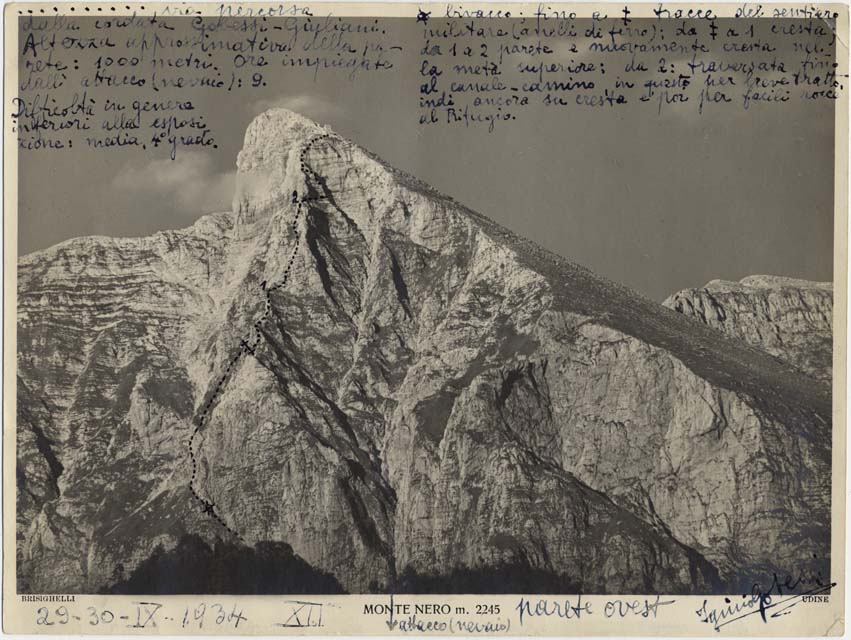 via percorsa
dalla cordata Gobessi-Giuliani.
Altezza approssimativa della pa-
rete: 1000 metri. Ore impiegate
dall'attacco (nevaio): 9.
Difficoltà in genere
inferiori alla esposi
zione: media, 4° grado.
* bivacco; fino a ‡ tracce del sentiero
militare (anelli di ferro); da ‡ a 1 cresta;
da 1 a 2 parete e nuovamente cresta nel-
la metà superiore; da 2: traversata fino
al canale-camino in questo per breve tratto,
indi ancora su cresta e poi per facili rocci
al Rifugio.
2
1
‡
*
BRISIGHELLI
UDINE
29-30-IX-1934 XII
MONTE NERO m. 2245
parete ovest
attacco (nevaio)